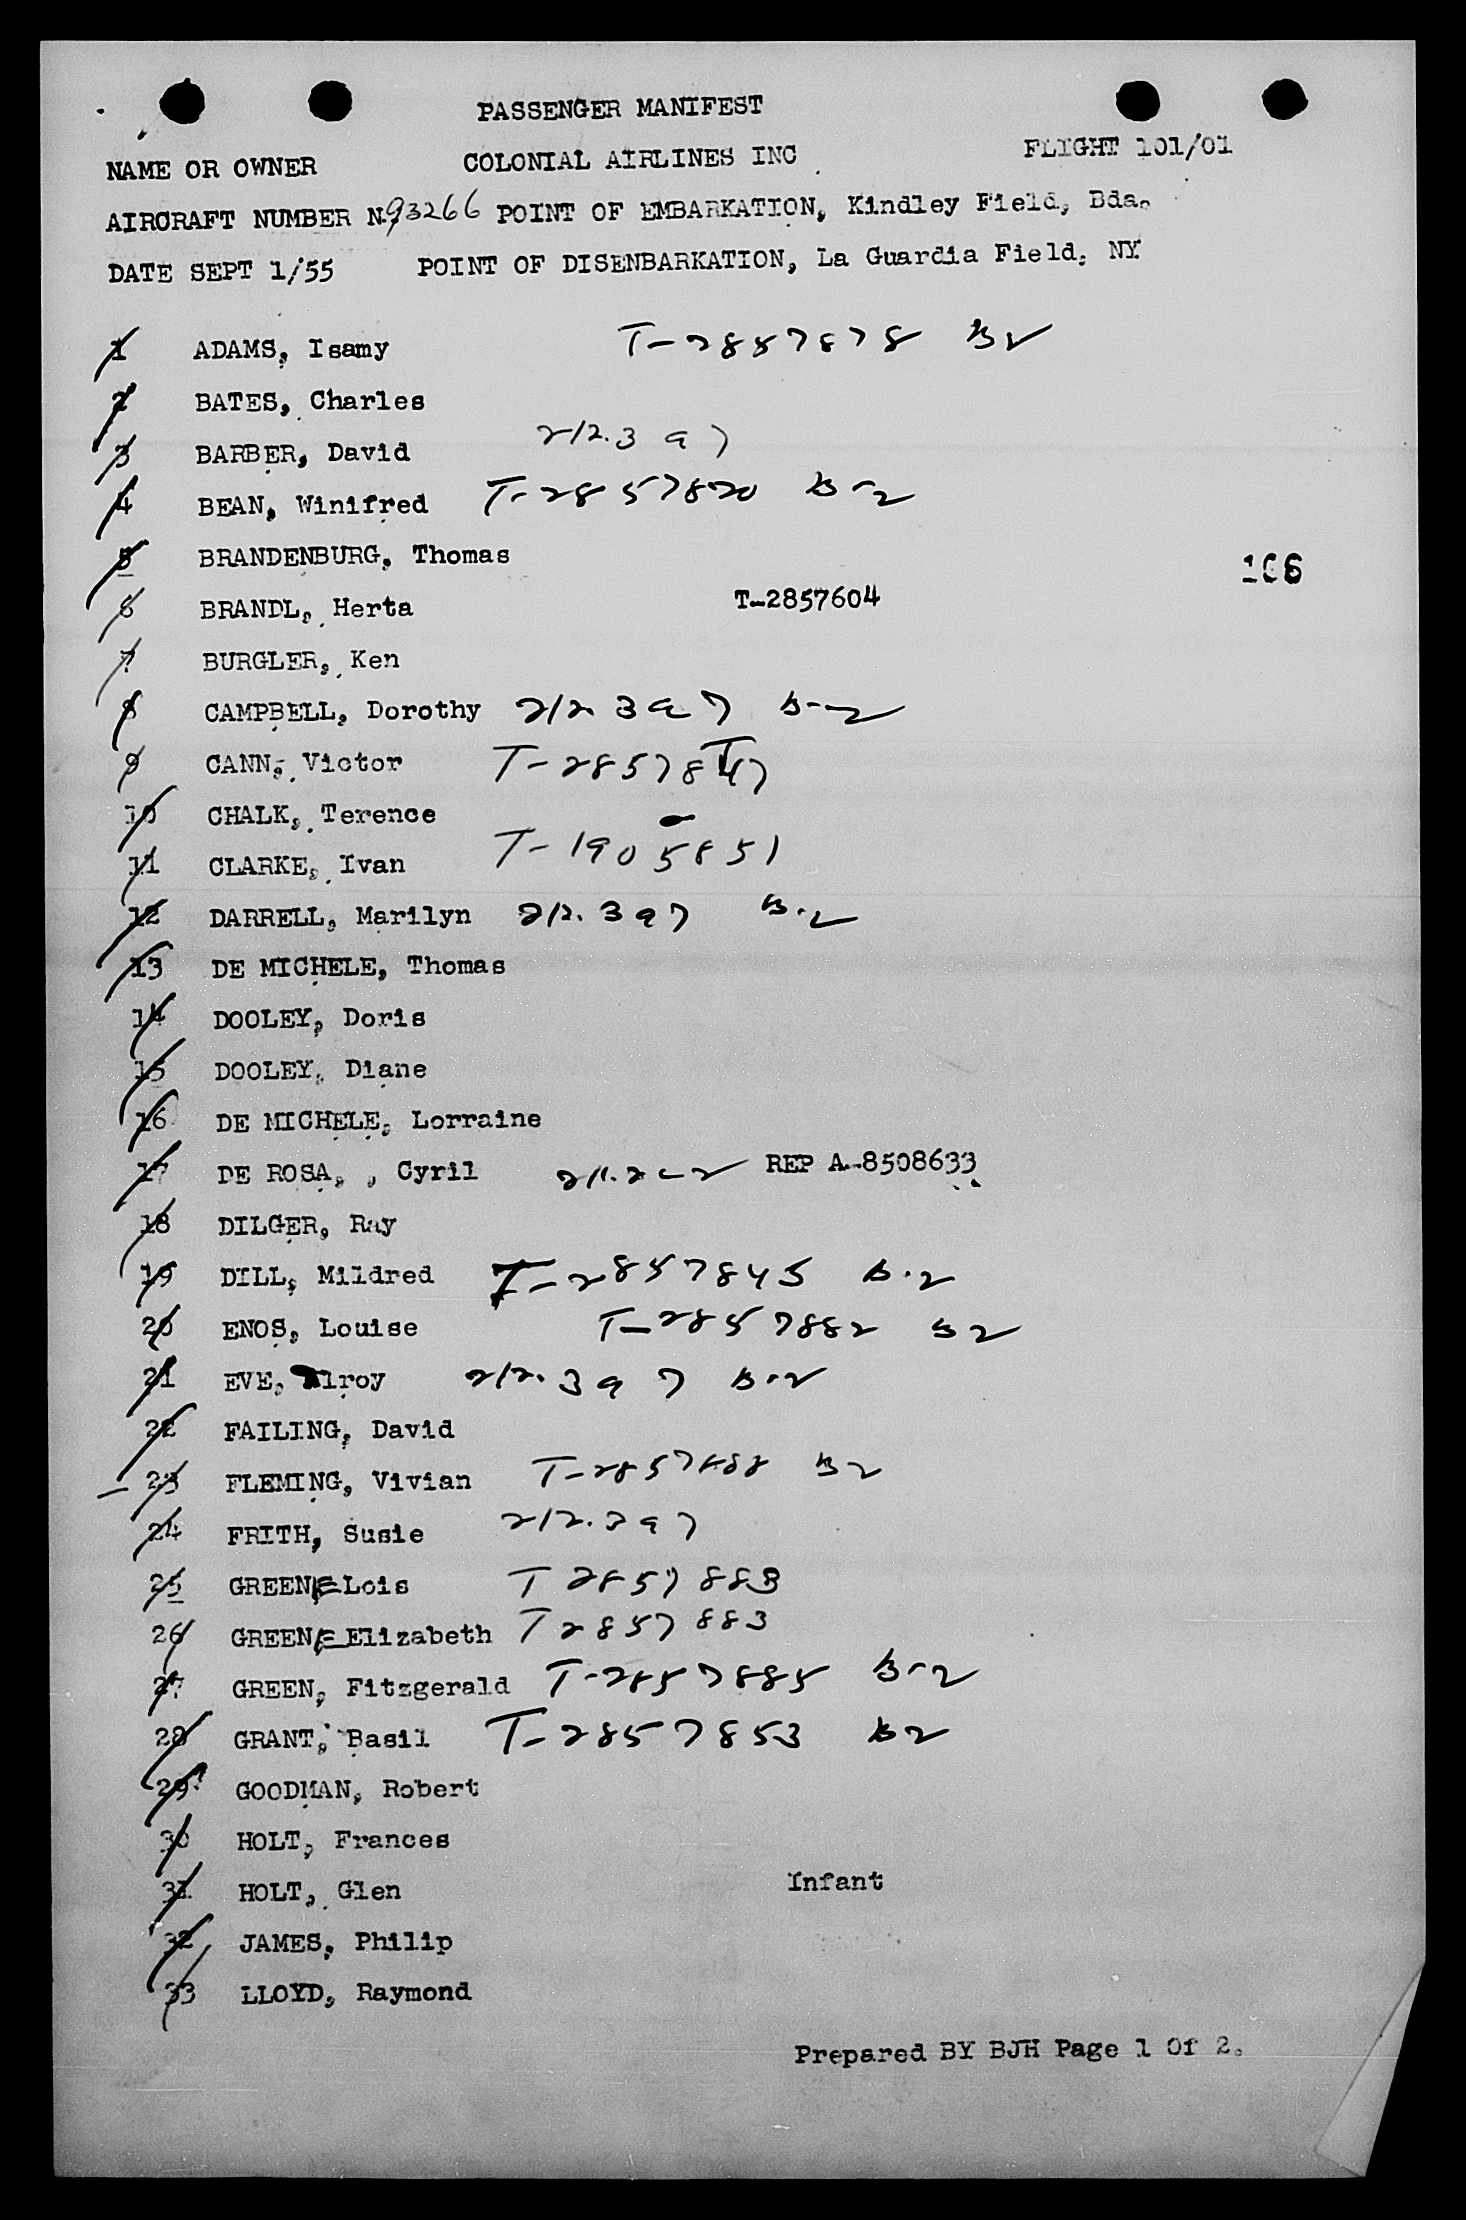 PASSENGER MANIFEST
NAME OR OWNER COLONIAL AIRLINES INC FLIGHT 101/01
AIRCRAFT NUMBER N.93266 POINT OF EMBARKATION, Kindley Field, Bda.
DATE SEPT 1/55 POINT OF DISENBARKATION, La Guardia Field, NY
1 ADAMS, Isamy T-2857878 B2
2 BATES, Charles
3 BARBER, David 212.3 a 7
4 BEAN, Winifred T-2857820 B-2
5 BRANDENBURG, Thomas
106
6 BRANDL, Herta T-2857604
7 BURGLER, Ken
8 CAMPBELL, Dorothy 212 3 a 7 B-2
9 CANN, Victor T-2857847
10 CHALK, Terence
11 CLARKE, Ivan T-1905851
12 DARRELL, Marilyn 212.3 a 7 B-2
13 DE MICHELE, Thomas
14 DOOLEY, Doris
15 DOOLEY, Diane
16 DE MICHELE, Lorraine
17 DE ROSA, , Cyril 211.2 c 2 REP A-8508633
18 DILGER, Ray
19 DILL, Mildred T-2857845 B-2
20 ENOS, Louise T-2857882 B2
21 EVE, lroy 212.3 a 7 B-2
22 FAILING, David
23 FLEMING, Vivian B2
24 FRITH, Susie 212.3 a 7
25 GREENE Lois T 2857883
26 GREENE Elizabeth T 2857883
27 GREEN, Fitzgerald T-2857885 B-2
28 GRANT, Basil T-2857853 B2
29 GOODMAN, Robert
30 HOLT, Frances
31 HOLT, Glen Infant
32 JAMES, Philip
33 LLOYD, Raymond
Prepared BY BJH Page 1 Of 2.